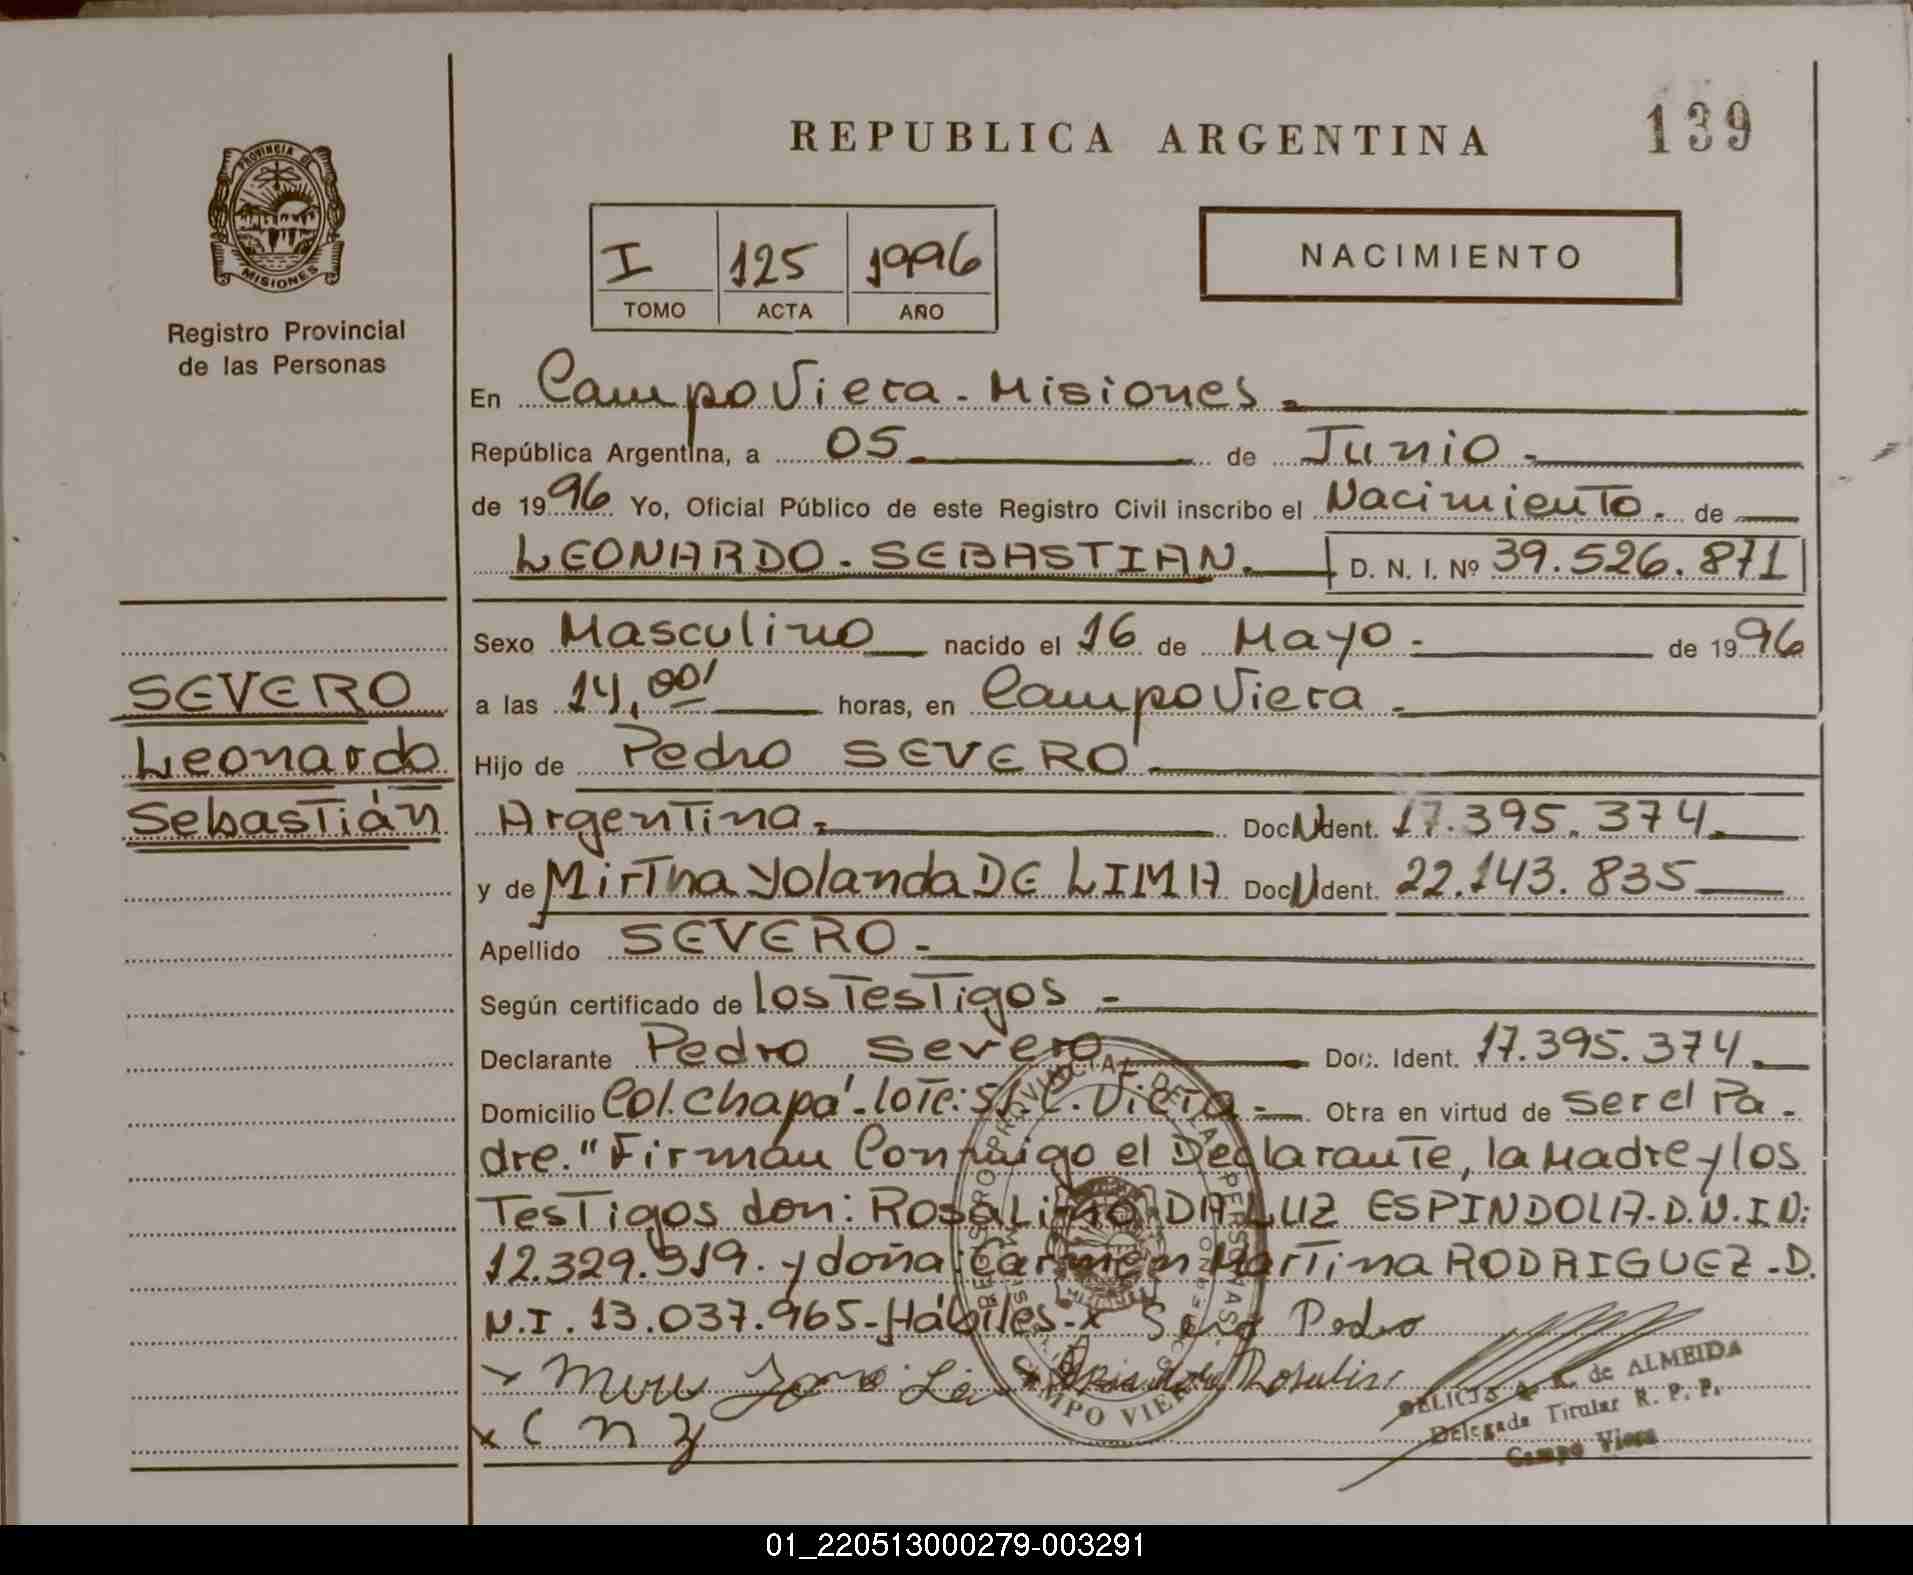 139
REPUBLICA ARGENTINA
PROVINCIA DE
MISIONES
Registro Provincial
de las Personas
I 125 1996
TOMO ACTA AÑO
NACIMIENTO
En Campo Viera - Misiones.
República Argentina, a 05 de Junio.
de 1996 Yo, Oficial Público de este Registro Civil inscribo el Nacimiento. de
LEONARDO. SEBASTIAN. D. N. I. Nº 39.526.871
SEVERO
Leonardo
Sebastián
Sexo Masculino nacido el 16 de Mayo. de 1996
a las 14,00' horas, en Campo Viera.
Hijo de Pedro SEVERO.
Argentina. Doc. Ident. 17.395.374.
y de Mirtha Yolanda DE LIMA Doc. Ident. 22.143.835
Apellido SEVERO.
Según certificado de los Testigos.
Declarante Pedro Severo Doc. Ident. 17.395.374.
Domicilio Col. Chapa'. lote: 51. C. Viera. Otra en virtud de ser el Pa-
dre." Firman Conmigo el Declarante, la Madre y los
Testigos don: Rosalino DA LUZ ESPINDOLA. D.N.I N:
12.329.319. y doña: Carmen Martina RODRIGUEZ. D.
N.I. 13.037.965. Hábiles. x Pedro
CAMPO VIERA
de ALMEIDA
Delegada Titular R. P. P.
Campo Viera
01_220513000279-003291